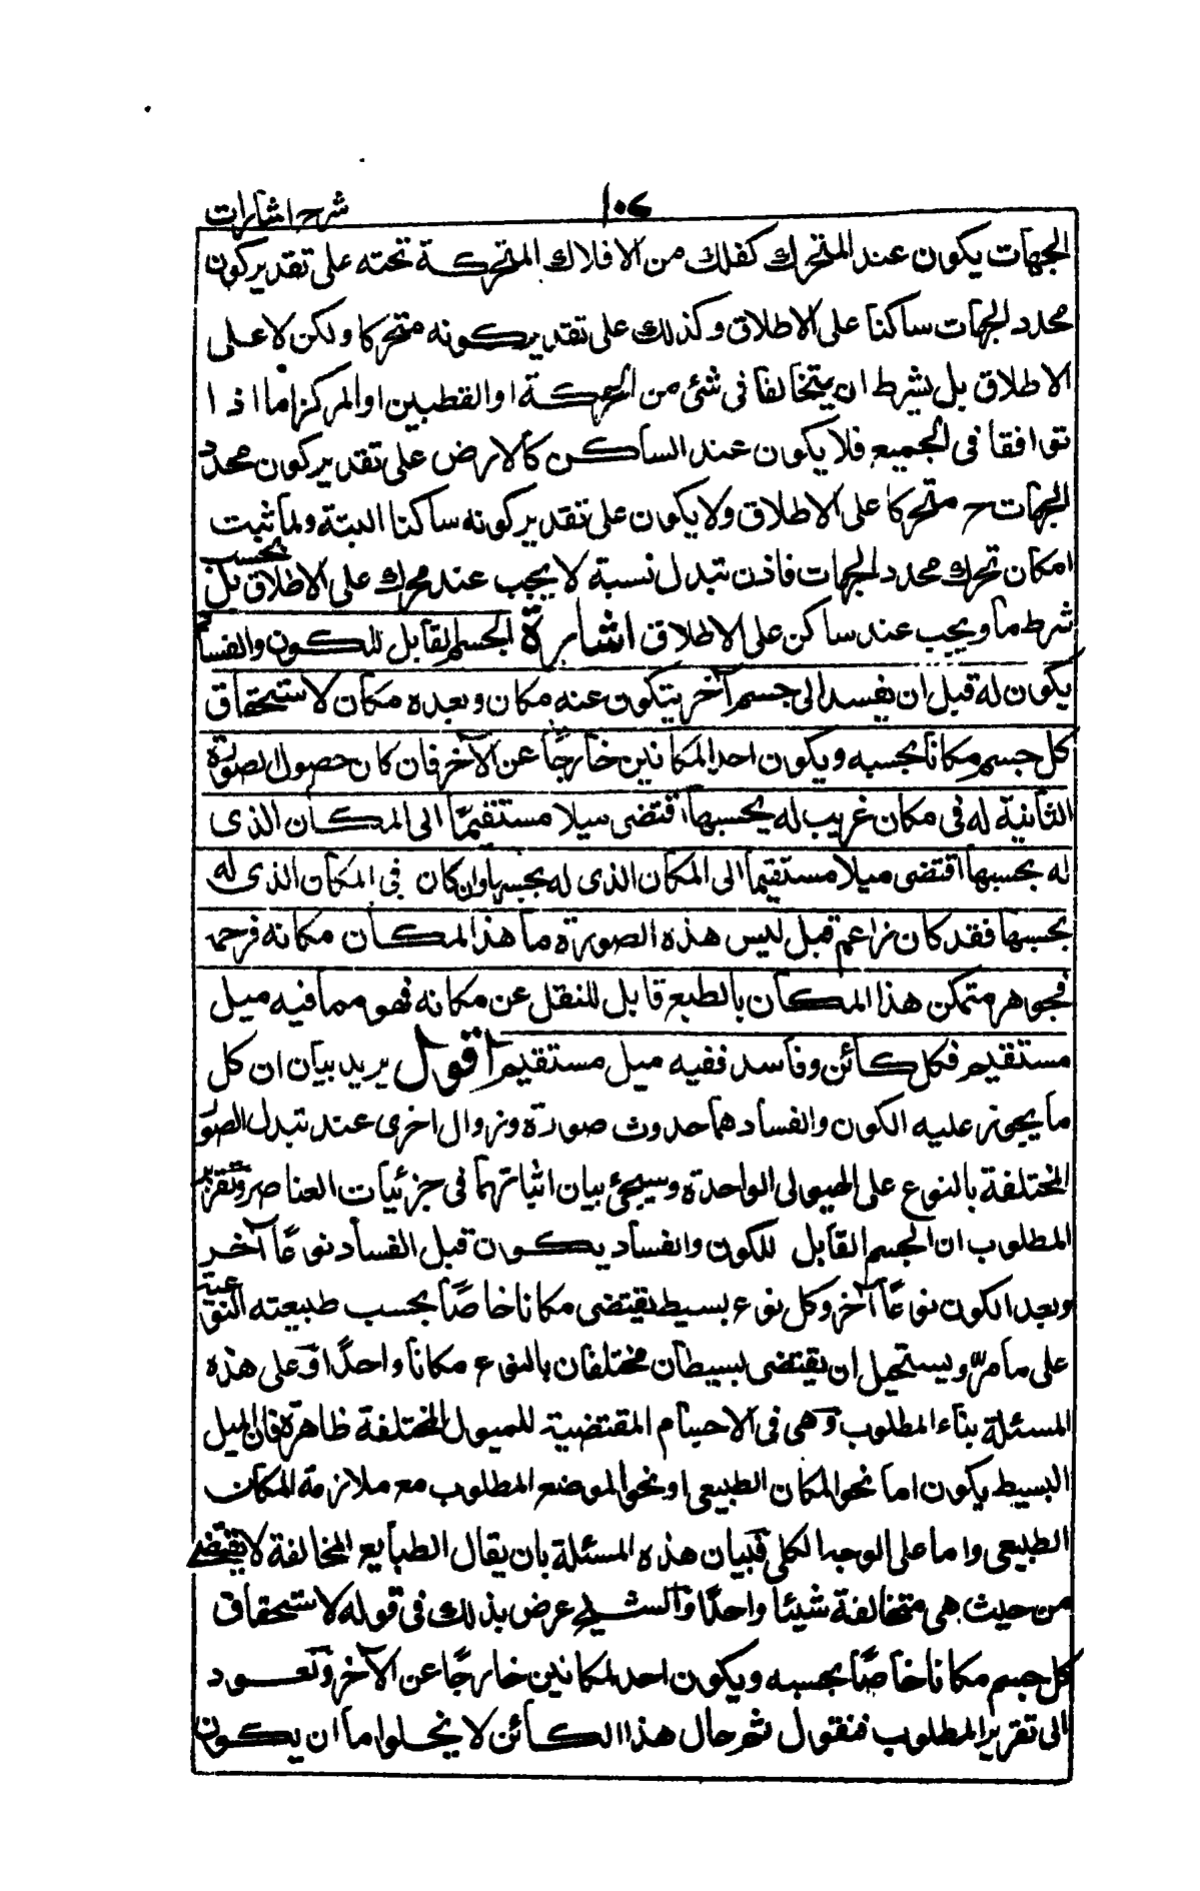 شرح اشارات
١٠٤
الجهات يكون عند المتحرك كفلك من الافلاك المتحركة تحته على تقدير كون
محدد الجهات ساكنا على الاطلاق وكذلك على تقدير كونه متحركا ولكن لا على
الاطلاق بل بشرط ان يتخالفا فى شئ من الحركة او القطبين او المركز اما اذا
توافقا فى الجميع فلا يكون عند الساكن كالارض على تقدير كون محدد
الجهات ح متحركا على الاطلاق ولا يكون على تقدير كونه ساكنا البتة ولما ثبت
امكان تحرك محدد الجهات فاذن تبدل نسبة لا يجب عند محرك على الاطلاق بل بحسب
شرط ما ويجب عند ساكن على الاطلاق اشارة الجسم القابل للكون والفساد
يكون له قبل ان يفسد الى جسم آخر يتكون عنه مكان وبعده مكان لاستحقاق
كل جسم مكانا بحسبه ويكون احد المكانين خارجًا عن الآخر فان كان حصول الصورة
الثانية له فى مكان غريب له بحسبها اقتضى ميلا مستقيمًا الى المكان الذى
له بحسبها اقتضى ميلا مستقيما الى المكان الذى له بحسبها وان كان فى المكان الذى له
بحسبها فقد كان زاعم قبل لبس هذه الصورة ما هذا المكان مكانه فزحمه
فجوهر متمكن هذا المكان بالطبع قابل للنقل عن مكانه فهو مما فيه ميل
مستقيم فكل كائن وفاسد ففيه ميل مستقيم اقول يريد بيان ان كل
ما يجوز عليه الكون والفساد هما حدوث صورة وزوال اخرى عند تبدل الصور
المختلفة بالنوع على الهيولى الواحدة وسيجئ بيان اثباتهما فى جزئيات العناصر وتقرير
المطلوب ان الجسم القابل للكون والفساد يكون قبل الفساد نوعًا آخر
وبعد الكون نوعًا آخر وكل نوع بسيط يقتضى مكانا خاصًا بحسب طبيعته النوعية
على ما مرّ ويستحيل ان يقتضى بسيطان مختلفان بالنوع مكانا واحدًا وعلى هذه
المسئلة بناء المطلوب وهى فى الاجسام المقتضية للميول المختلفة ظاهرة فان الميل
البسيط يكون اما نحو المكان الطبيعى او نحو الموضع المطلوب مع ملازمة المكان
الطبيعى واما على الوجه الكلى فبيان هذه المسئلة بان يقال الطبايع المخالفة لا يقتضى
من حيث هى متخالفة شيئا واحدًا والشيخ عرض بذلك فى قوله لاستحقاق
كل جسم مكانا خاصًا بحسبه ويكون احد المكانين خارجًا عن الآخر وتعود
الى تقرير المطلوب فنقول ثم حال هذا الكائن لا يخلوا ما ان يكون